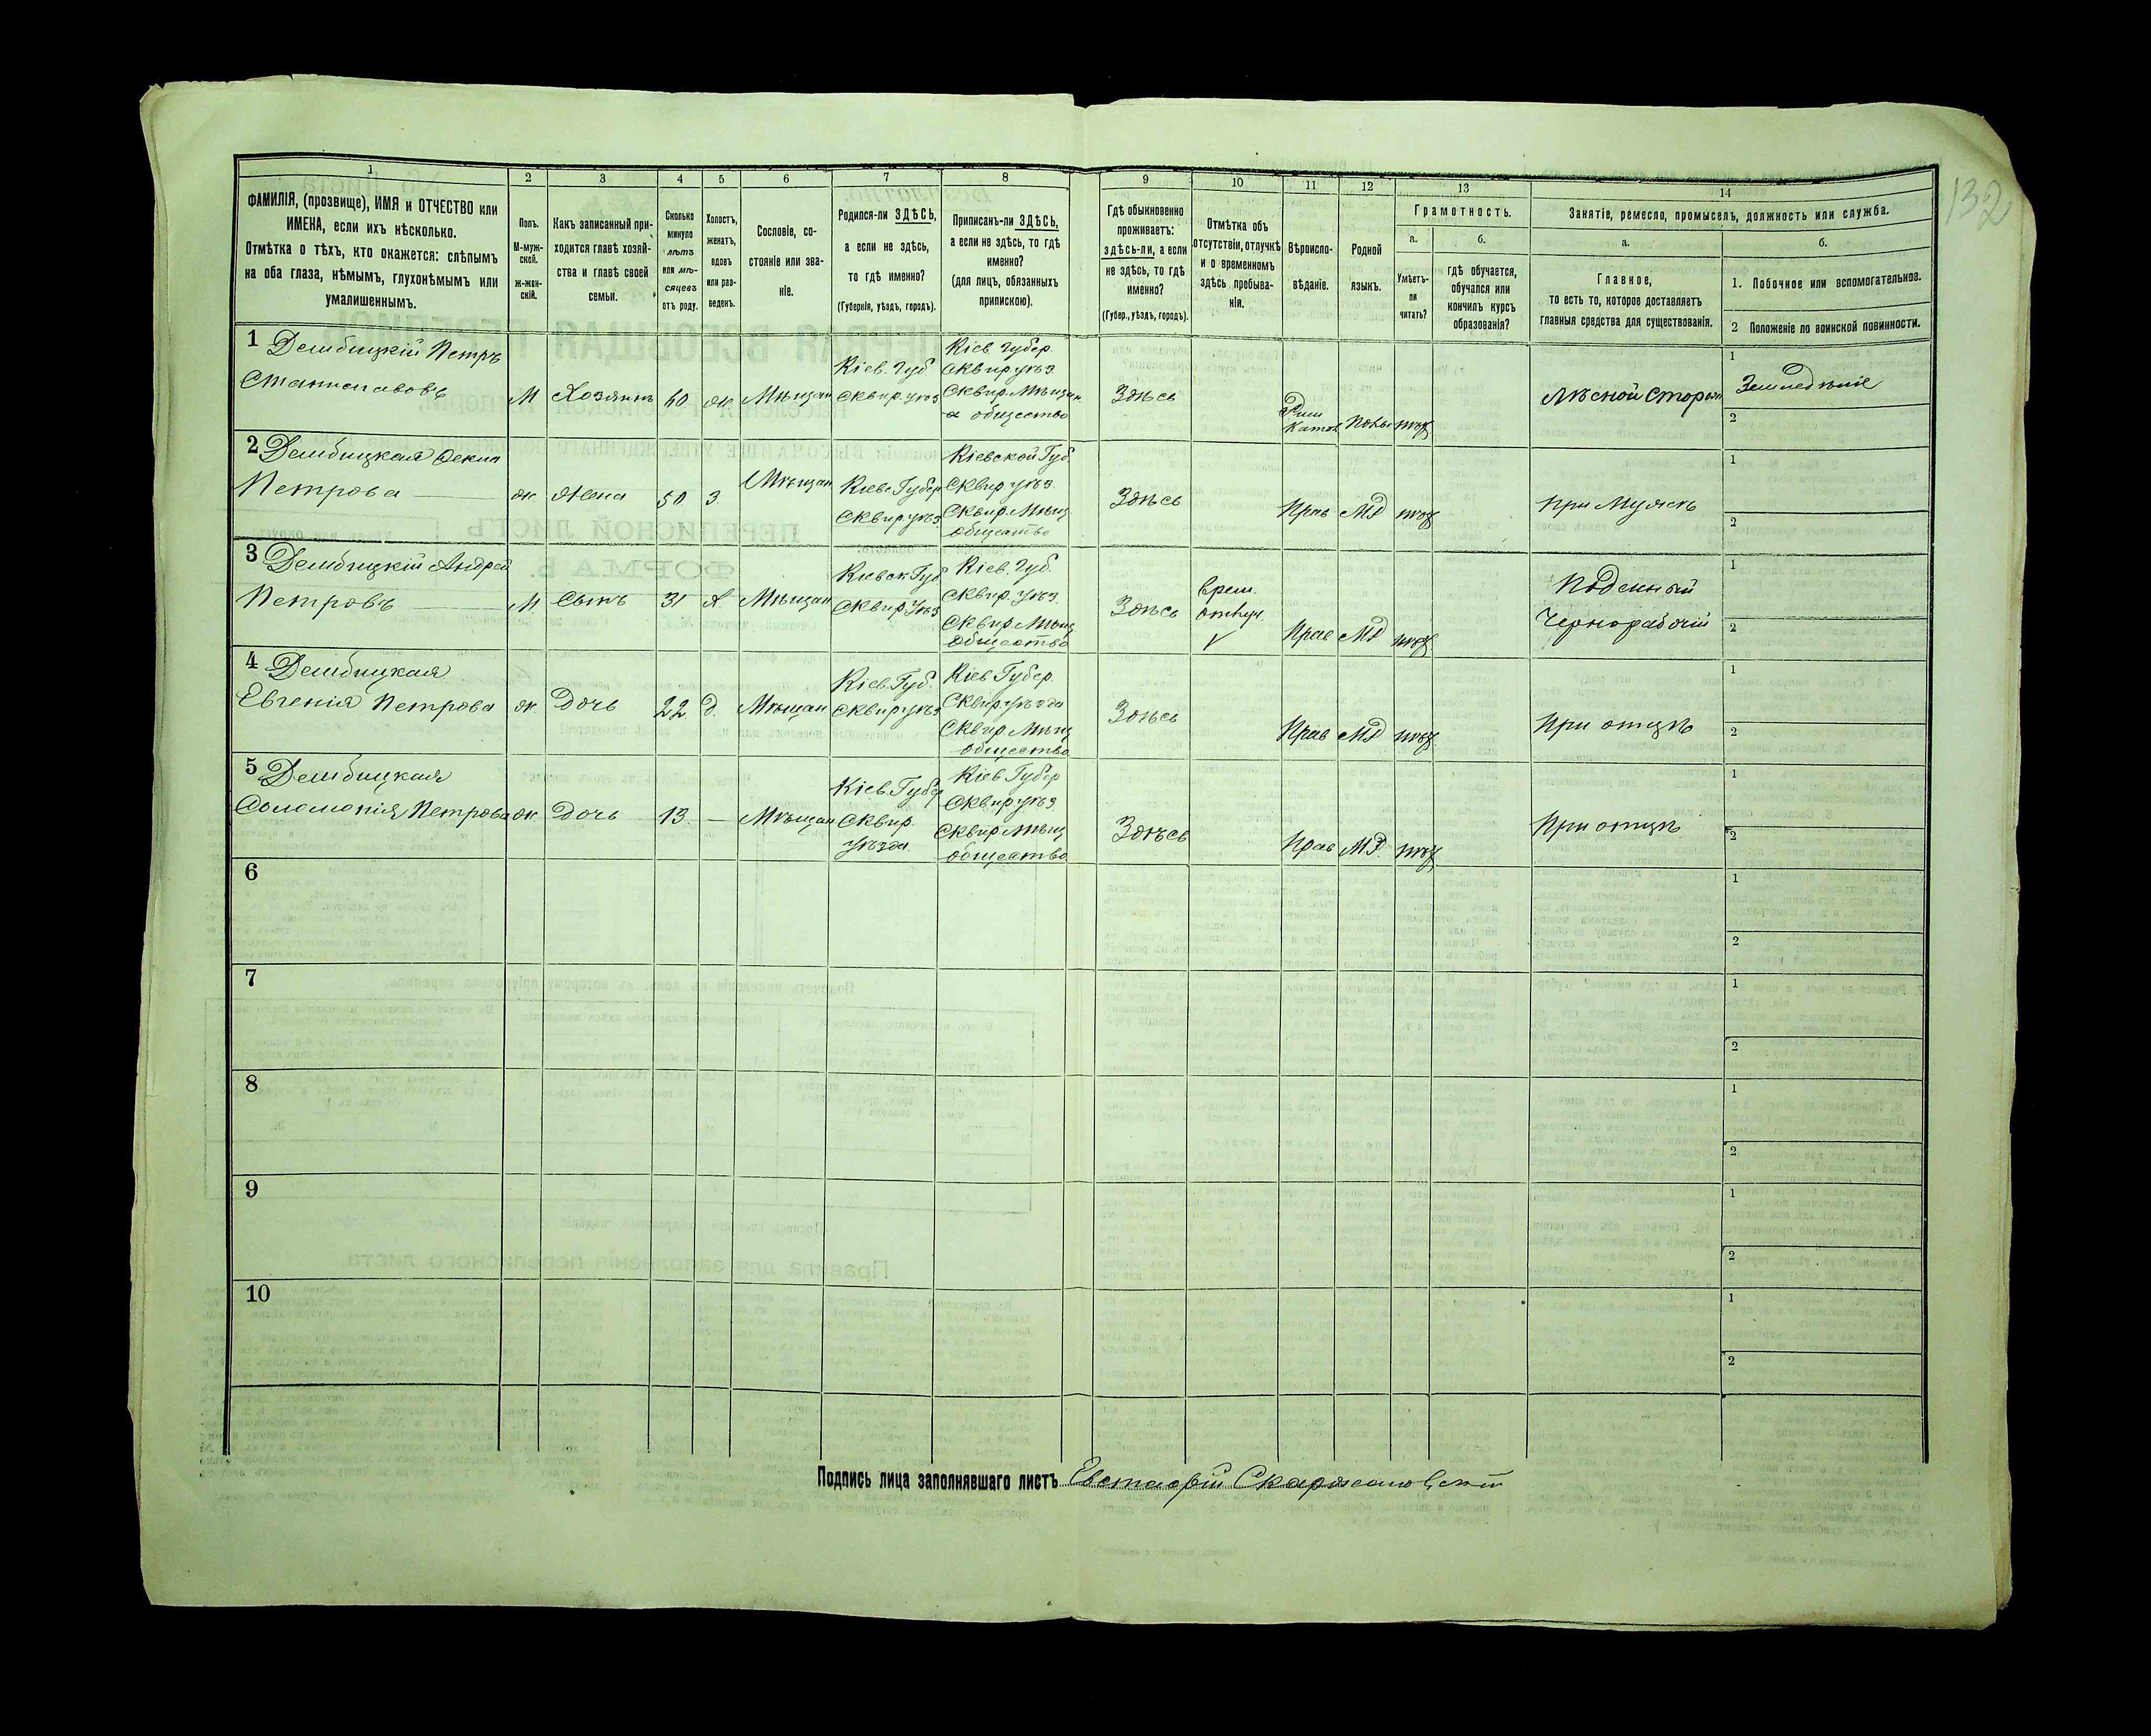 132
1 2 3 4 5 6 7 8 9 10 11 12 13 14
ФАМИЛІЯ, (прозвище), ИМЯ и ОТЧЕСТВО или
ИМЕНА, если ихъ нѣсколько.
Отмѣтка о тѣхъ, кто окажется: слѣпымъ
на оба глаза, нѣмымъ, глухонѣмымъ или
умалишеннымъ.
Полъ.
М-муж-
ской.
ж-жен-
скій.
Какъ записанный при-
ходится главѣ хозяй-
ства и главѣ своей
семьи.
Сколько
минуло
лѣтъ
или мѣ-
сяцевъ
отъ роду.
Холостъ,
женатъ,
вдовъ
или раз-
веденъ.
Сословіе, со-
стояніе или зва-
ніе.
Родился-ли ЗДѢСЬ,
а если не здѣсь,
то гдѣ именно?
(Губернія, уѣздъ, городъ).
Приписанъ-ли ЗДѢСЬ,
а если не здѣсь, то гдѣ
именно?
(для лицъ, обязанныхъ
припискою).
Гдѣ обыкновенно
проживаетъ:
здѣсь-ли, а если
не здѣсь, то гдѣ
именно?
(Губер., уѣздъ, городъ).
Отмѣтка объ
отсутствіи, отлучкѣ
и о временномъ
здѣсь пребыва-
ніи.
Вѣроиспо-
вѣданіе.
Родной
языкъ.
Грамотность.
а.
Умѣетъ-
ли
читать?
б.
гдѣ обучается,
обучался или
кончилъ курсъ
образованія?
Занятіе, ремесло, промыселъ, должность или служба.
а.
Главное,
то есть то, которое доставляетъ
главныя средства для существованія.
б.
1. Побочное или вспомогательное.
2 Положеніе по воинской повинности.
1 Дембицкій Петръ
Станиславовъ
М Хозяинъ 60 ж Мѣщан
Кіев. Губ
Сквир. уѣз
Кіев. Губер.
Сквир уѣз
Сквир. Мѣщан
а общество
Здѣсь
Рим
Катол
Польс
Лѣсной Сторож
1 Земледѣліе
2
2 Дембицкая Фекла
Петрова
ж Жена 50 З Мѣщан
Кіевс Губер
Сквир уѣз
Кіевской Губ.
Сквир уѣз.
Сквир. Мѣщ
общество
Здѣсь
Прав МР
При Мужѣ
1
2
3 Дембицкій Андрей
Петровъ
М Сынъ 31 Х Мѣщан
Кіевск Губ
Сквир Уѣз
Кіев. Губ.
Сквир. Уѣз.
Сквир. Мѣщ
общество
Здѣсь
Врем.
отлуч.
V
Прав МР
Поденный
Чернорабочій
1
2
4 Дембицкая
Евгенія Петрова
ж. Дочь 22 Д. Мѣщан
Кіев. Губ.
Сквир уѣз
Кіев Губер.
Сквир уѣзда
Сквир Мѣщ
общество
Здѣсь
Прав МР
При отцѣ
1
2
5 Дембицкая
Соломонія Петрова
ж Дочь 13. — Мѣщан
Кіев Губер
Сквир.
уѣзда
Кіев Губер
Сквир уѣз
Сквир Мѣщ
общество
Здѣсь
Прав МР.
При отцѣ
1
2
6
1
2
7
1
2
8
1
2
9
1
2
10
1
2
Подпись лица заполнявшаго листъ